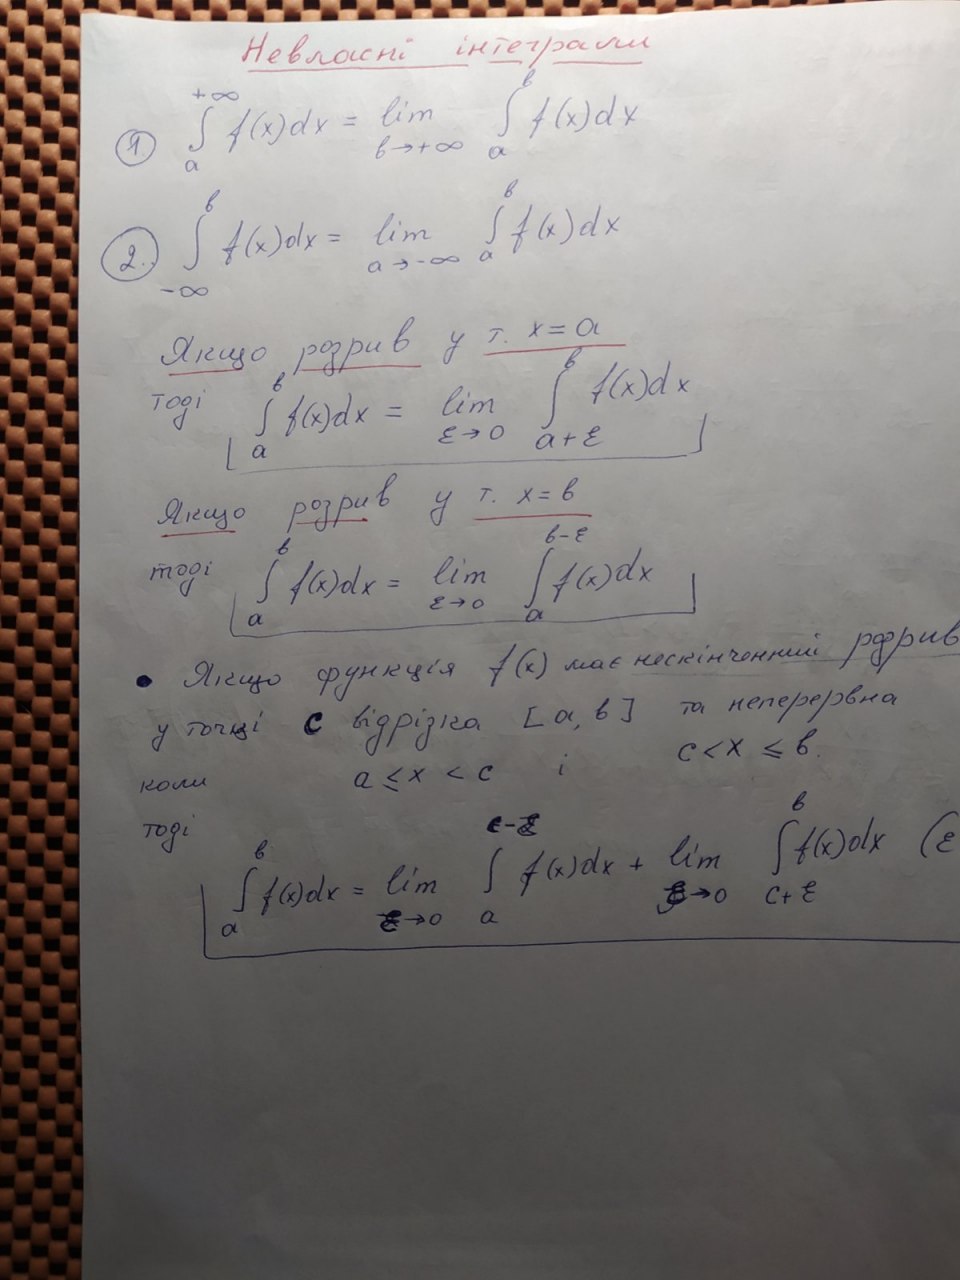 Невласні інтеграли
① ∫ₐ^{+∞} f(x)dx = lim_{b→+∞} ∫ₐ^b f(x)dx
②. ∫_{-∞}^b f(x)dx = lim_{a→-∞} ∫ₐ^b f(x)dx
Якщо розрив у т. x=a
тоді ∫ₐ^b f(x)dx = lim_{ε→0} ∫_{a+ε}^b f(x)dx
Якщо розрив у т. x=b
тоді ∫ₐ^b f(x)dx = lim_{ε→0} ∫ₐ^{b-ε} f(x)dx
• Якщо функція f(x) має нескінченний розрив
у точці c відрізка [a, b] та неперервна
коли a ≤ x < c і c < x ≤ b.
тоді
∫ₐ^b f(x)dx = lim_{ε→0} ∫ₐ^{c-ε} f(x)dx + lim_{ε→0} ∫_{c+ε}^b f(x)dx (ε